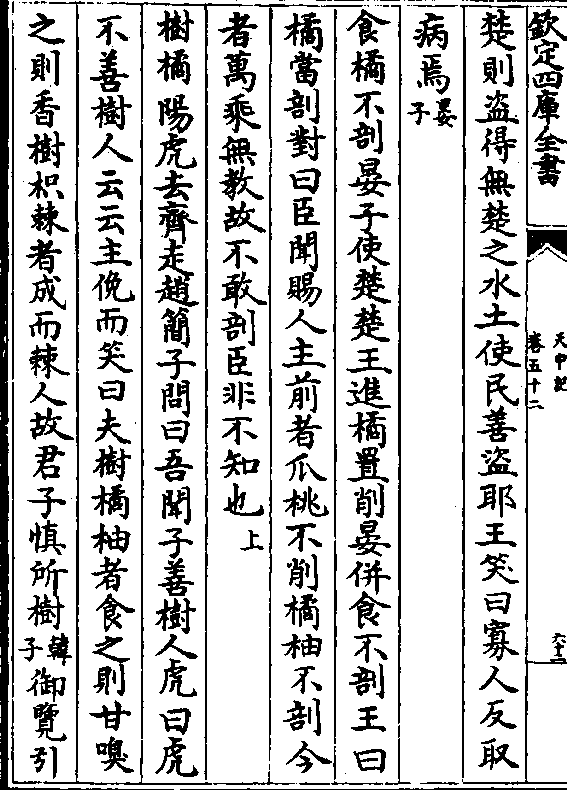 欽定四庫全書
天中記
卷五十二
六十二
楚則盜得無楚之水土使民善盜耶王笑曰寡人反取
病焉晏子
食橘不剖晏子使楚楚王進橘置削晏併食不剖王曰
橘當剖對曰臣聞賜人主前者瓜桃不削橘柚不剖今
者萬乘無教故不敢剖臣非不知也上
樹橘陽虎去齊走趙簡子問曰吾聞子善樹人虎曰虎
不善樹人云云主俛而笑曰夫樹橘柚者食之則甘嗅
之則香樹枳棘者成而棘人故君子慎所樹韓子御覽引